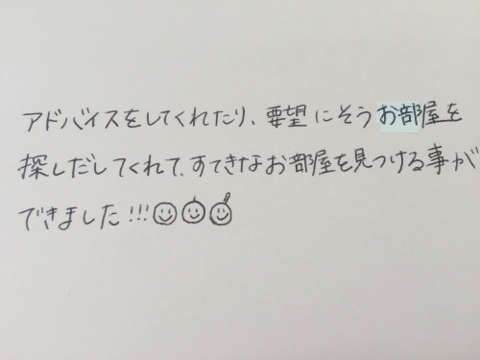 アドバイスをしてくれたり、要望にそうお部屋を
探しだしてくれて、すてきなお部屋を見つける事が
できました!!!